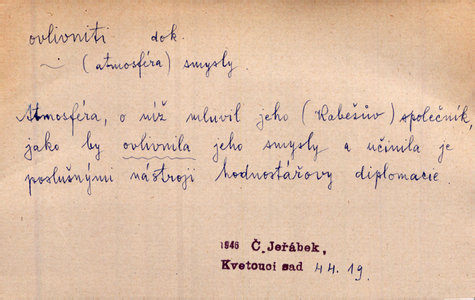 ovlivniti dok.
~ (atmosféra) smysly.
Atmosféra, o níž mluvil jeho (Kabešův) společník,
jako by ovlivnila jeho smysly a učinila je
poslušnými nástroji hodnostářovy diplomacie.
1946 Č. Jeřábek,
Kvetouci sad 44.19.